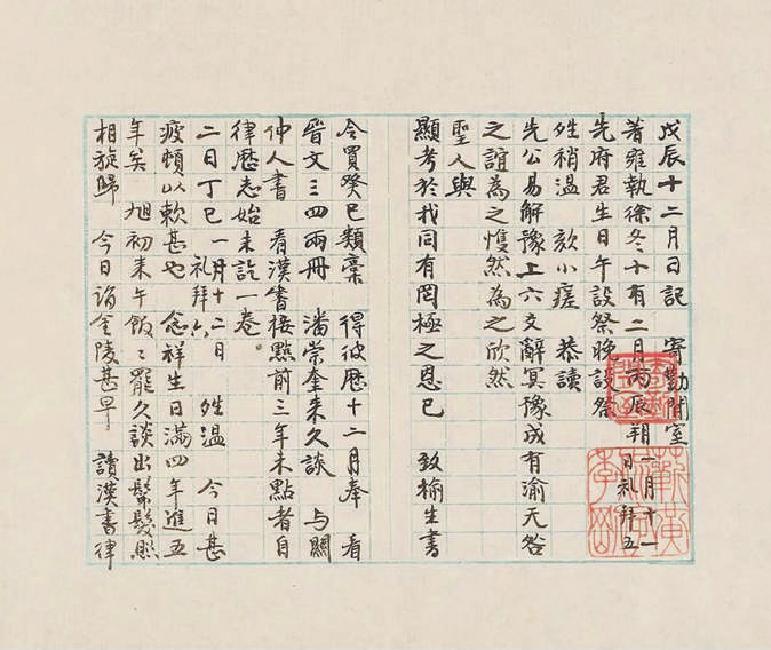 戊辰十二月日記 寄勤閒室
著雍執徐冬十有二月丙辰朔一月十一日礼拜五
先府君生日午設祭晚設祭
姓稍溫 欬小瘥 恭讀
先公易解豫上六文辭冥豫成有渝无咎
之誼為之愯然為之欣然
聖人與
顯考於我同有罔極之恩已 致榆生書
令買癸巳類稾 得彼曆十二月奉 看
晉文三四兩冊 潘崇奎来久談 与關
仲人書 看漢書接點前三年未點者自
律歷志始未訖一卷。
二日丁巳一月十二日礼拜六 姓溫 今日甚
疲頓以欶甚也 念祥生日滿四年進五
年矣 旭初来午飯〻罷久談出鬄髮熙
相旋歸 今日詣金陵甚早 讀漢書律